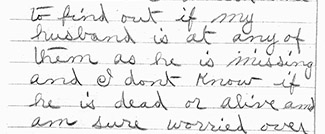 to find out if my
husband is at any of
them as he is missing
and I dont know if
he is dead or alive and
am sure worried over